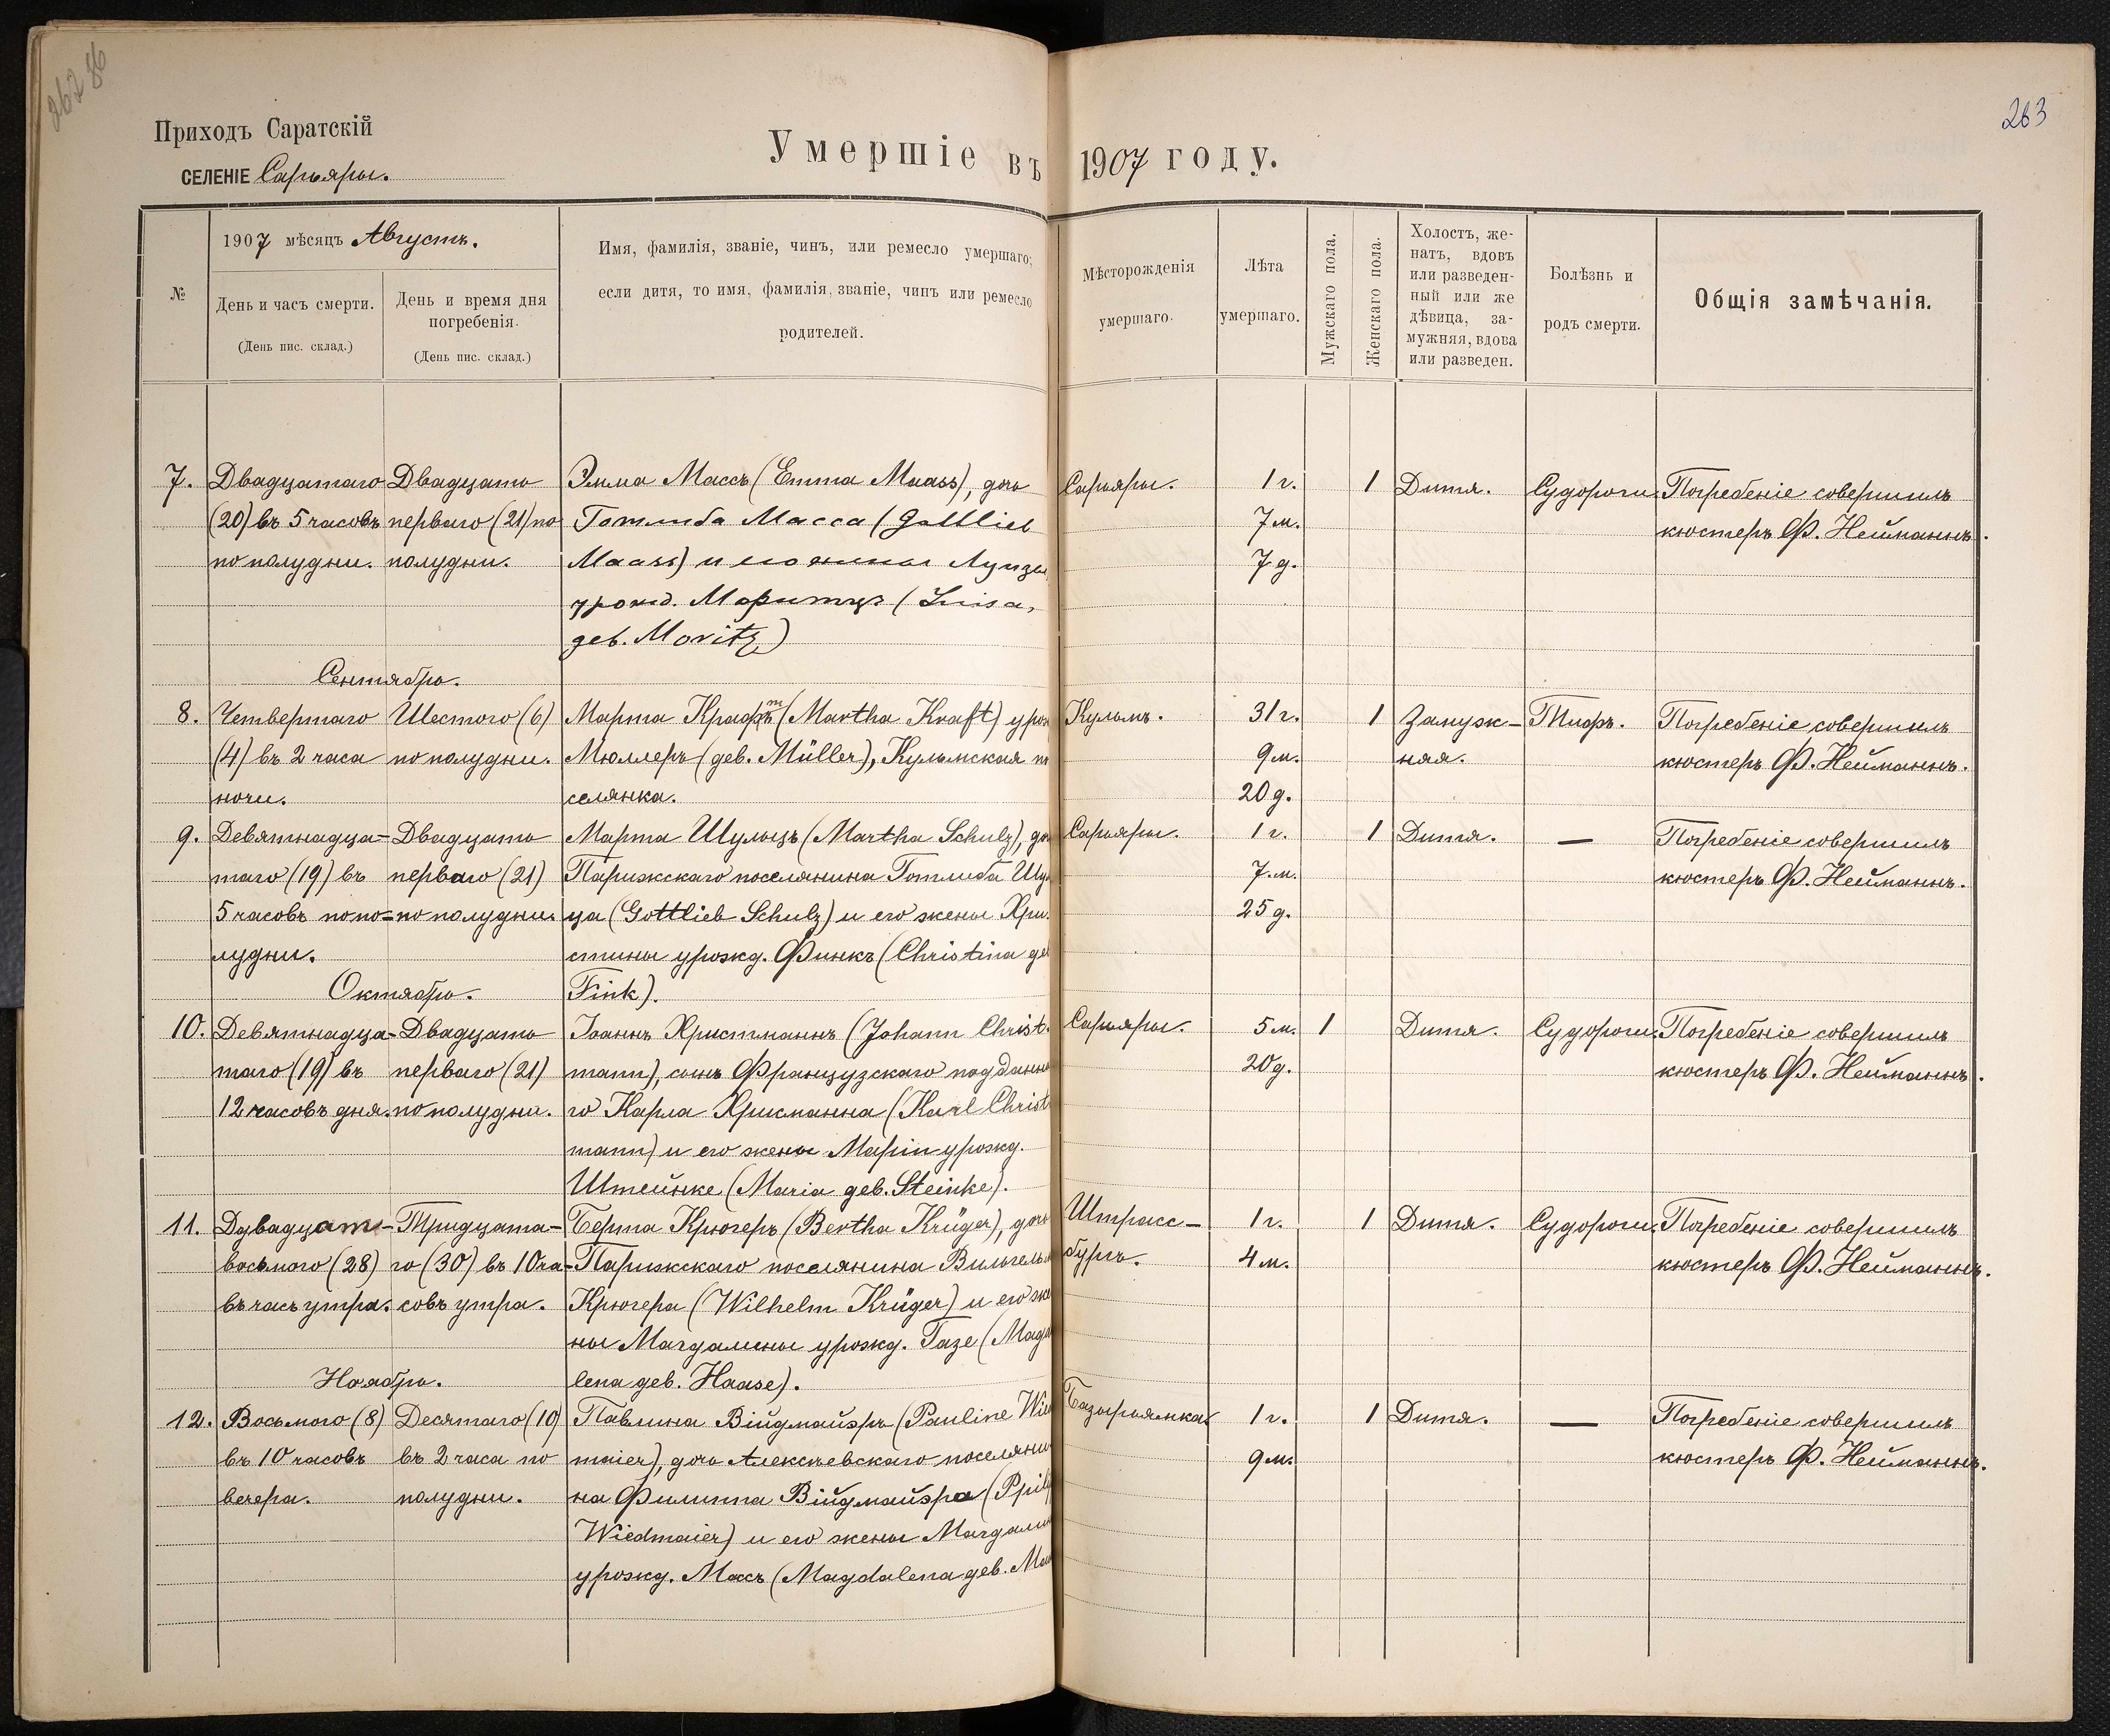 263
Приходъ Саратскій
СЕЛЕНІЕ Сарьяры.
Умершіе въ 1907 году.
№
1907 мѣсяцъ Августъ.
День и часъ смерти.
(День пис. склад.)
День и время дня
погребенія.
(День пис. склад.)
Имя, фамилія, званіе, чинъ, или ремесло умершаго;
если дитя, то имя, фамилія, званіе, чинъ или ремесло
родителей.
Мѣсторожденія
умершаго.
Лѣта
умершаго.
Мужскаго пола.
Женскаго пола.
Холостъ, же-
натъ, вдовъ
или разведен-
ный или же
дѣвица, за-
мужняя, вдова
или разведен.
Болѣзнь и
родъ смерти.
Общія замѣчанія.
7.
Двадцатаго
(20) въ 5 часовъ
по полудни.
Двадцать
перваго (21) по
полудни.
Эмма Массъ (Emma Maass), дочь
Готлиба Масса (Gottlieb
Maass) и его жены Луизы
урожд. Моритцъ (Luisa,
geb. Moritz)
Сарьяры.
1 г.
7 м.
7 д.
1
Дитя.
Судороги.
Погребеніе совершилъ
кюстеръ Ф. Нейманнъ.
Сентябрь.
8.
Четвертаго
(4) въ 2 часа
ночи.
Шестого (6)
по полудни.
Марта Крафтъ (Martha Kraft) урож
Мюллеръ (geb. Müller), Кульмская по
селянка.
Кульмъ.
31 г.
9 м.
20 д.
1
Замуж-
няя.
Тифъ.
Погребеніе совершилъ
кюстеръ Ф. Нейманнъ.
9.
Девятнадца-
таго (19) въ
5 часовъ по по-
лудни.
Двадцать
перваго (21)
по полудни.
Марта Шульцъ (Martha Schulz), до
Парижскаго поселянина Готлиба Шу
ца (Gottlieb Schulz) и его жены Хри
стины урожд. Финкъ (Christina ge
Fink).
Сарьяры.
1 г.
7. м.
25 д.
1
Дитя.
—
Погребеніе совершилъ
кюстеръ Ф. Нейманнъ.
Октябрь.
10.
Девятнадца-
таго (19) въ
12 часовъ дня.
Двадцать
перваго (21)
по полудни.
Іоаннъ Христманнъ (Johann Christ
mann), сынъ Французскаго подданна
го Карла Хрисманна (Karl Christ
mann) и его жены Маріи урожд.
Штейнке (Maria geb. Steinke).
Сарьяры.
5 м.
20 д.
1
Дитя.
Судороги.
Погребеніе совершилъ
кюстеръ Ф. Нейманнъ.
11.
Двадцати-
восьмого (28)
въ часъ утра.
Тридцата-
го (30) въ 10 ча-
совъ утра.
Берта Крюгеръ (Bertha Krüger), дочь
Парижскаго поселянина Вильгельм
Крюгера (Wilhelm Krüger) и его же
ны Магдалины урожд. Газе (Magda
lena geb. Haase).
Штрасс-
бургъ.
1 г.
4 м.
1
Дитя.
Судороги.
Погребеніе совершилъ
кюстеръ Ф. Нейманнъ.
Ноябрь.
12.
Восьмого (8)
въ 10 часовъ
вечера.
Десятаго (10)
въ 2 часа по
полудни.
Павлина Війдмайэръ (Pauline Wie
maier), дочь Алексѣевскаго поселяни
на Филиппа Війдмайэра (Ppili
Wiedmaier) и его жены Магдали
урожд. Массъ (Magdalena geb. Maa
Базырьямка
1 г.
9 м.
1
Дитя.
—
Погребеніе совершилъ
кюстеръ Ф. Нейманнъ.